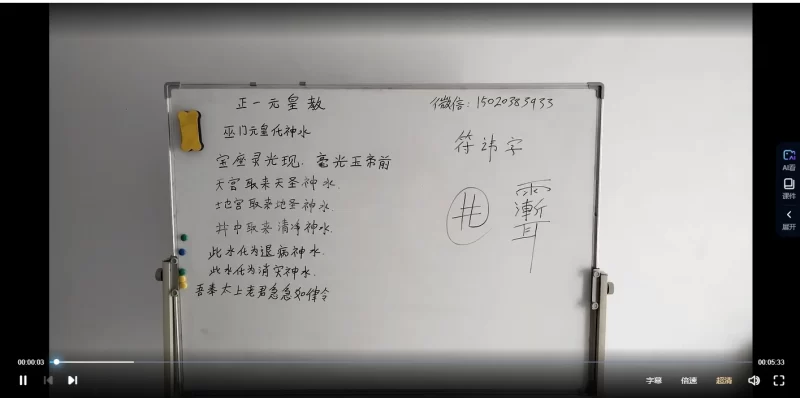 正一元皇教
微信：15020383933
巫门元皇化神水
宝座灵光现．毫光玉帝前
天宫取来天圣神水．
地宫取来地圣神水．
井中取来清净神水．
此水化为退病神水．
此水化为消灾神水．
吾奉太上老君急急如律令
符讳字
井
AI看
课件
展开
00:00:03
00:05:33
字幕
倍速
超清